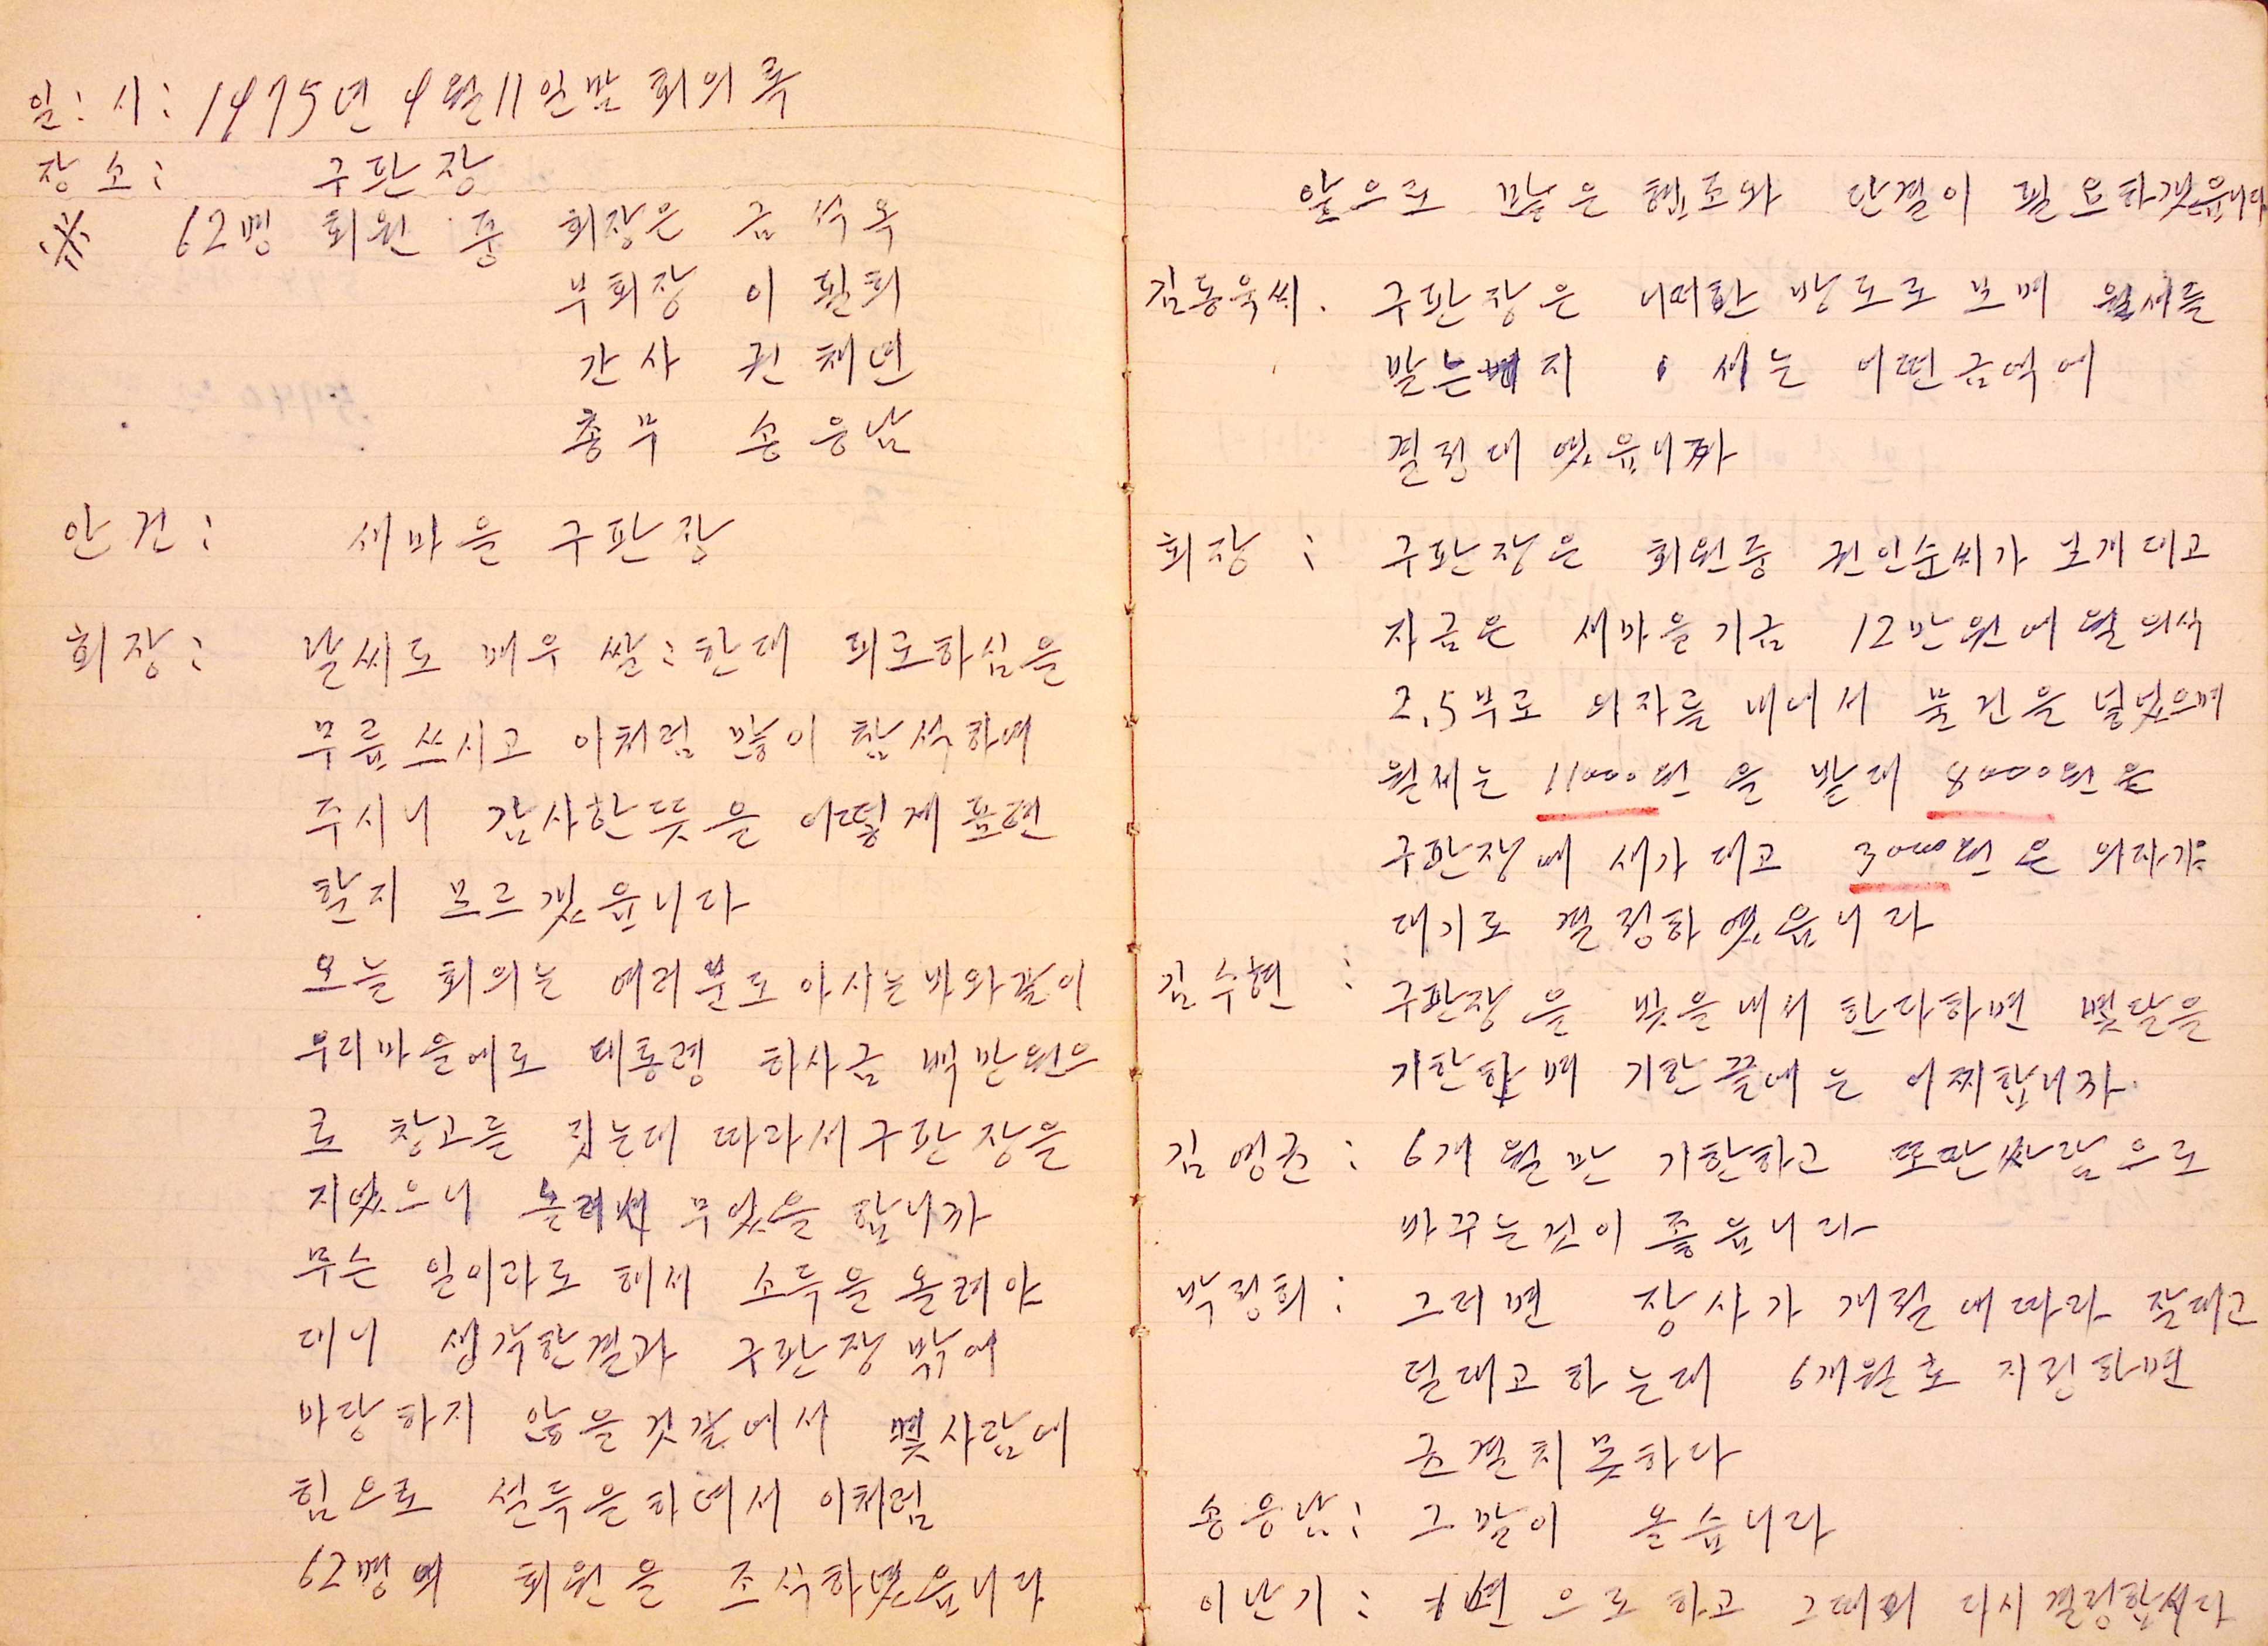 일:시: 1975년 4월 11일밤 회의록
장소: 구판장
※ 62명 회원 중 회장은 금석옥
부회장 이필희
간사 권채연
총무 손응남
안건: 새마을 구판장
회장: 날씨도 매우 쌀:한대 피로하심을
무릅쓰시고 이처럼 많이 참석하여
주시니 감사한뜻을 어떻게 표현
할지 모르겠읍니다
오늘 회의는 여러분도 아시는바와같이
우리마을에로 대통령 하사금 백만원으
로 창고를 짓는데 따라서구판장을
지었으니 놀려서 무엇을 합니까
무슨 일이라도 해서 소득을 올려야
대니 생각한결과 구판장 밖에
마땅하지 않을것같에서 몇사람에
힘으로 설득을하여서 이처럼
62명에 회원을 조식하였읍니다
앞으로 많은 협조와 단결이 필요하겠읍니다
김동욱씨. 구판장은 어떠한 방도로 보며 월세를
받는 지 세는 어떤금액에
결정대 였읍니까
회장: 구판장은 회원중 권인순씨가 보개대고
자금은 새마을기금 12만원에월의식
2.5부로 의자를 내어서 물건을 넣었으며
월세는 11000원을 받대 8000원은
구판장에 세가 대고 3000원은 의자가
대기로 결정하였읍니다
김수현: 구판장을 빚을내서 한다하면 몇달을
기한하며 기한끝에는 어찌합니까
김영군: 6개월만 기한하고 또딴싸람으로
바꾸는것이 좋읍니다
박정희: 그러면 장사가 개절에따라 잘대고
덜대고하는데 6개월로 지정하면
조결치못하다
송응남: 그말이 올습니다
이난기: 1면으로하고 그때에 다시결정합시다